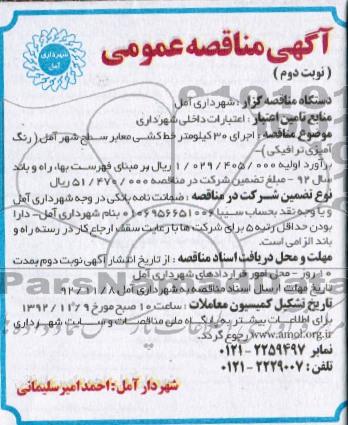 آگهی مناقصه عمومی
شهرداری
آمل
( نوبت دوم )
دستگاه مناقصه گزار : شهرداری آمل
منابع تامین اعتبار : اعتبارات داخلی شهرداری
موضوع مناقصه : اجرای ۳۰ کیلومتر خط کشی معابر سطح شهر آمل ( رنگ
آمیزی ترافیکی ) -
برآورد اولیه ۱/۰۲۹/۴۰۵/۰۰۰ ریال بر مبنای فهرست بهاء راه و باند
سال ۹۲ - مبلغ تضمین شرکت در مناقصه ۵۱/۴۷۰/۰۰۰ ریال
نوع تضمین شرکت در مناقصه : ضمانت نامه بانکی در وجه شهرداری آمل
و یا وجه نقد بحساب سیبا ۰۱۰۶۹۵۶۶۵۱۰۰۶ بنام شهرداری آمل - دارا
بودن حداقل رتبه ۵ برای شرکت ها با رعایت سقف ارجاع کار در رسته راه و
باند الزامی است.
مهلت و محل دریافت اسناد مناقصه : از تاریخ انتشار آگهی نوبت دوم بمدت
۱۰ روز - محل امور قراردادهای شهرداری آمل
تاریخ مهلت ارسال اسناد مناقصه به شهرداری آمل ۹۲/۱۱/۸
تاریخ تشکیل کمیسیون معاملات : ساعت ۱۰ صبح مورخ ۱۳۹۲/۱۱/۹
برای اطلاعات بیشتر به پایگاه ملی مناقصات و سایت شهرداری
www.amol.org.ir رجوع گردد.
نمابر ۲۲۵۹۴۹۷-۰۱۲۱
تلفن : ۲۲۲۹۰۰۷-۰۱۲۱
شهردار آمل : احمد امیر سلیمانی